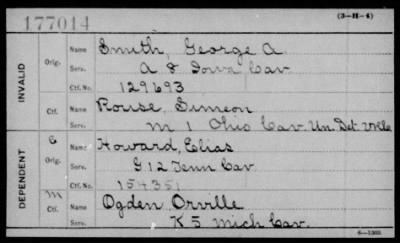 177014
(3-H-4)
INVALID
Orig. Name Smith, George A.
Serv. A 8 Iowa Cav
Ctf. No. 129693
Ctf. Name Rouse, Simeon
Serv. M 1 Ohio Cav. Un. Det.
DEPENDENT
C Orig. Name Howard, Elias
Serv. G 12 Tenn Cav.
Ctf. No. 154351
M Ctf. Name Ogden Orville
Serv. K 5 Mich Cav.